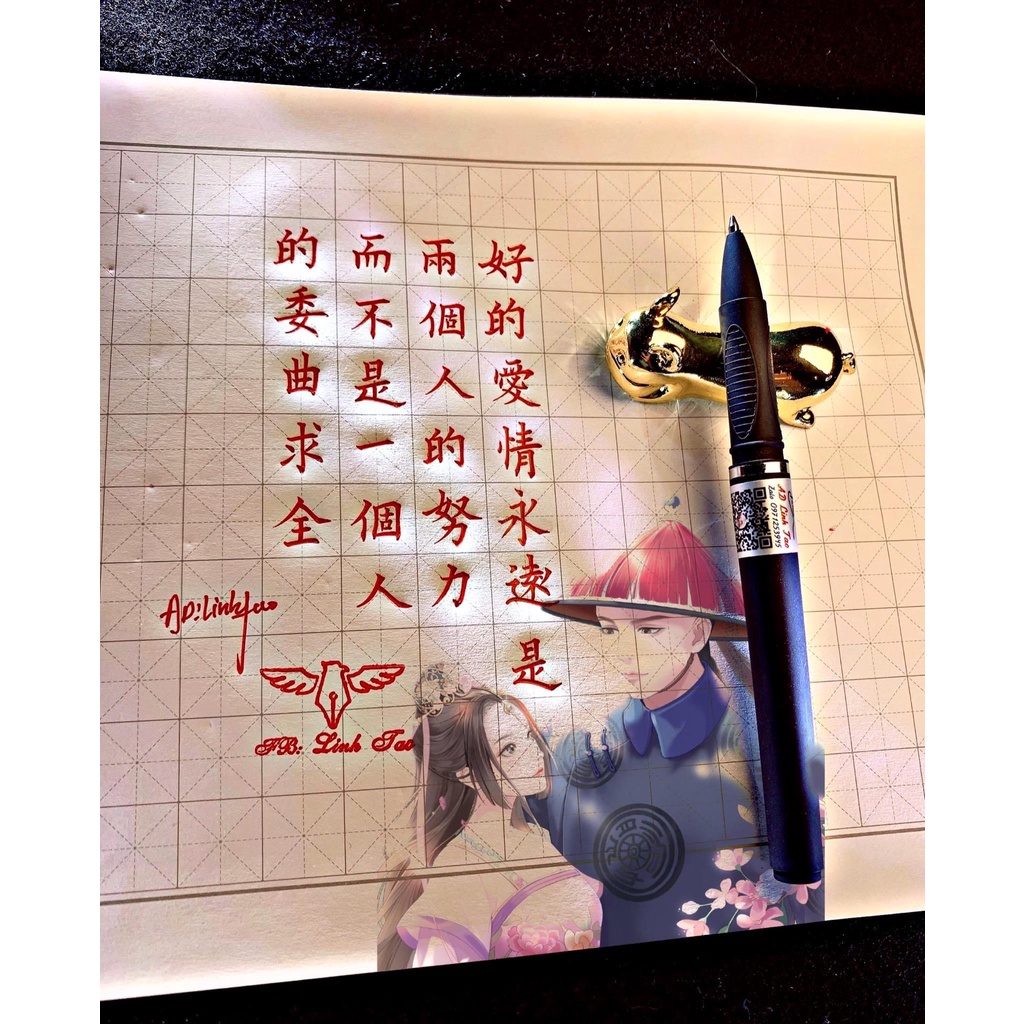 好的愛情永遠是
兩個人的努力
而不是一個人
的委曲求全
AD:Linhtao
FB: Linh Tao
AD Linh Tao
Zalo 0971253945